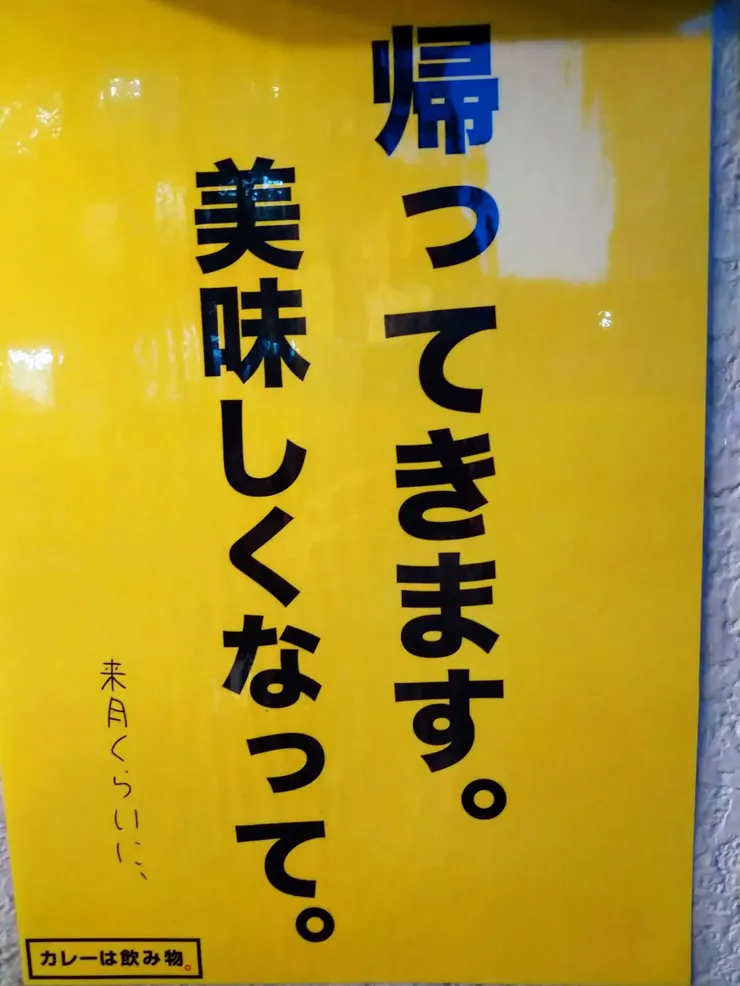 帰ってきます。
美味しくなって。
来月くらいに、
カレーは飲み物。